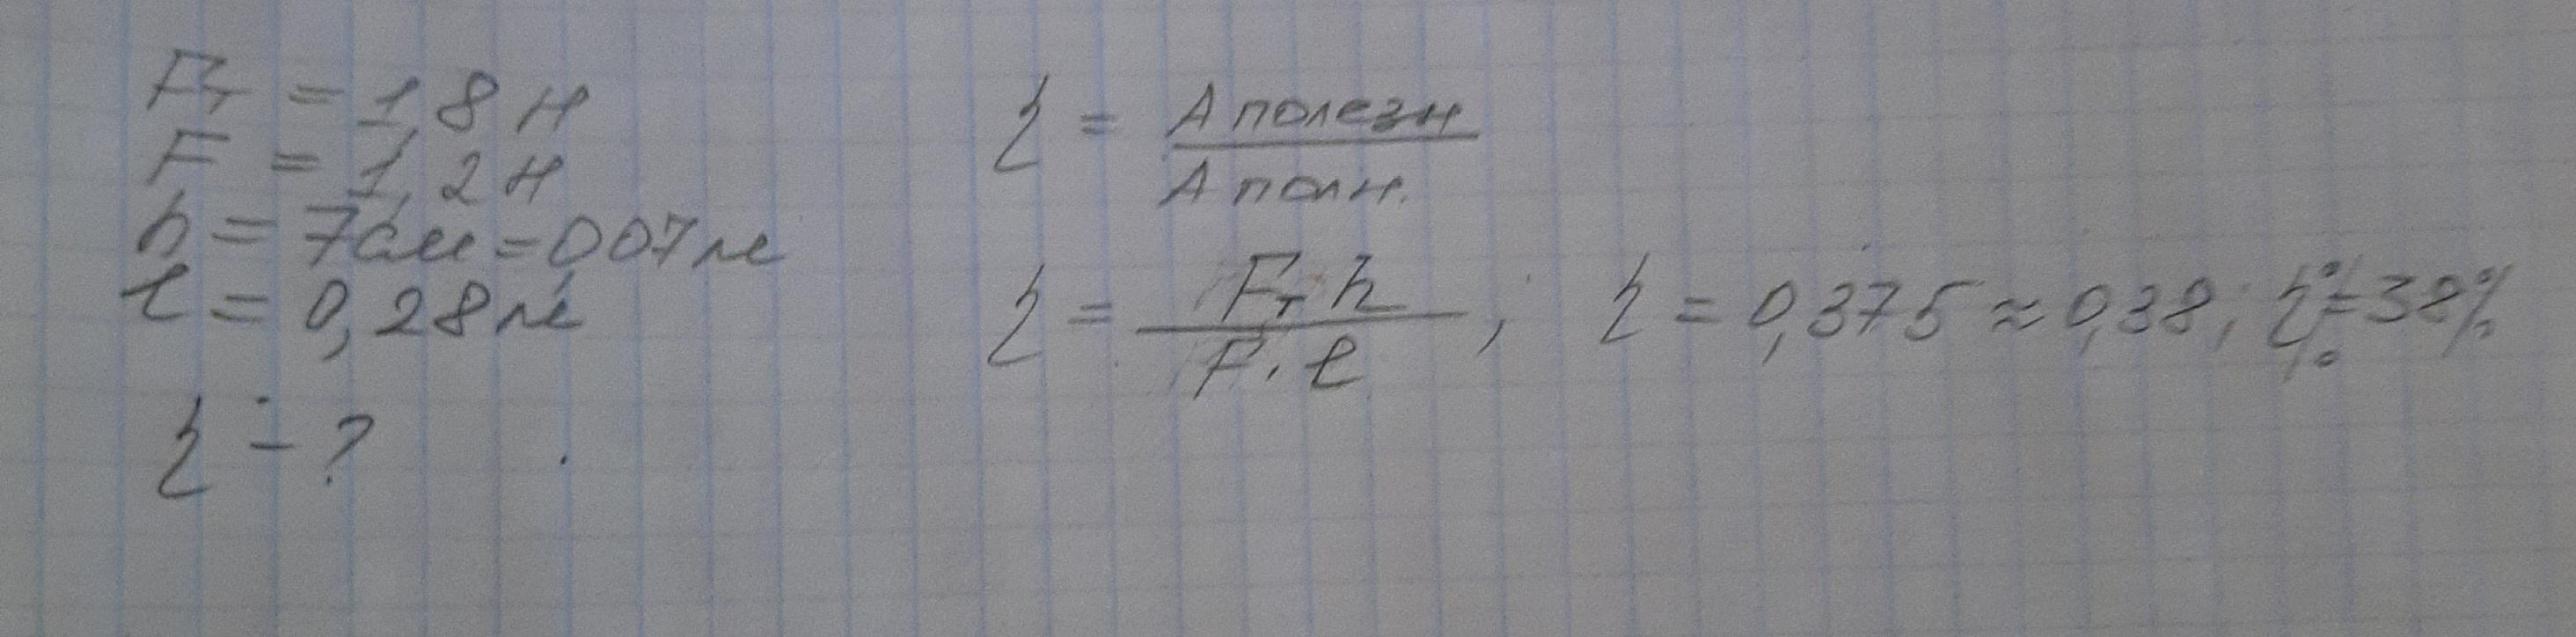 Fт = 1,8 Н
F = 1,2 Н
h = 7см = 0,07 м
l = 0,28 м
η - ?
η = A полезн / A полн.
η = Fт h / F · l ; η = 0,375 ≈ 0,38 ; η% = 38%